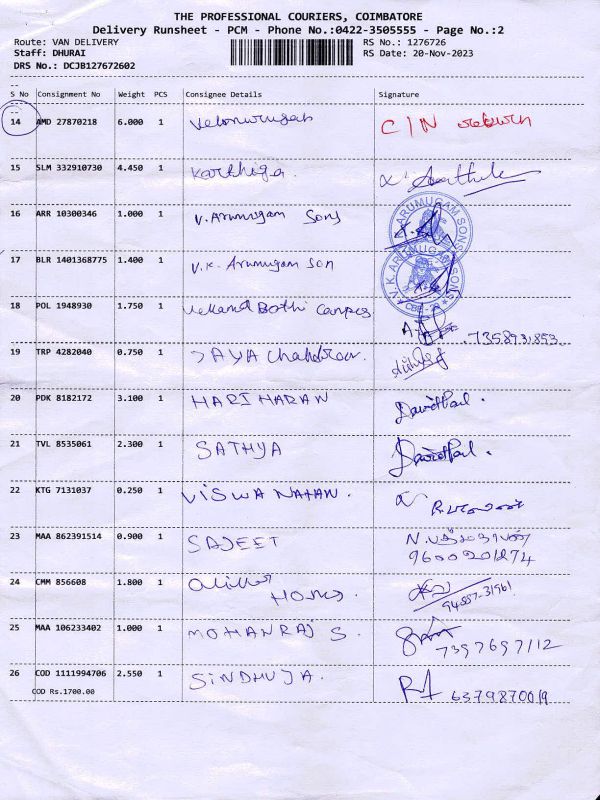 THE PROFESSIONAL COURIERS, COIMBATORE
Delivery Runsheet - PCM - Phone No.:0422-3505555 - Page No.:2
Route: VAN DELIVERY RS No.: 1276726
Staff: DHURAI RS Date: 20-Nov-2023
DRS No.: DCJB127672602
S No Consignment No Weight PCS Consignee Details Signature
14 AMD 27870218 6.000 1 Velmurugan C/N
15 SLM 332910730 4.450 1 Karthiga.
16 ARR 10300346 1.000 1 V. Arumugam Sons
17 BLR 1401368775 1.400 1 V.K. Arumugam Son
V.K.ARUMUGAM SONS
18 POL 1948930 1.750 1 7358931853
19 TRP 4282040 0.750 1 JAYA
20 PDK 8182172 3.100 1 HARI HARAN DavidPaul.
21 TVL 8535061 2.300 1 SATHYA DavidPaul.
22 KTG 7131037 0.250 1 VISWA NATHAN.
23 MAA 862391514 0.900 1 SAJEET
9600201274
24 CMM 856608 1.800 1 94557-31961
25 MAA 106233402 1.000 1 MOHANRAJ S. 7397697112
26 COD 1111994706 2.550 1 SINDHUJA. 6379870019
COD Rs.1700.00